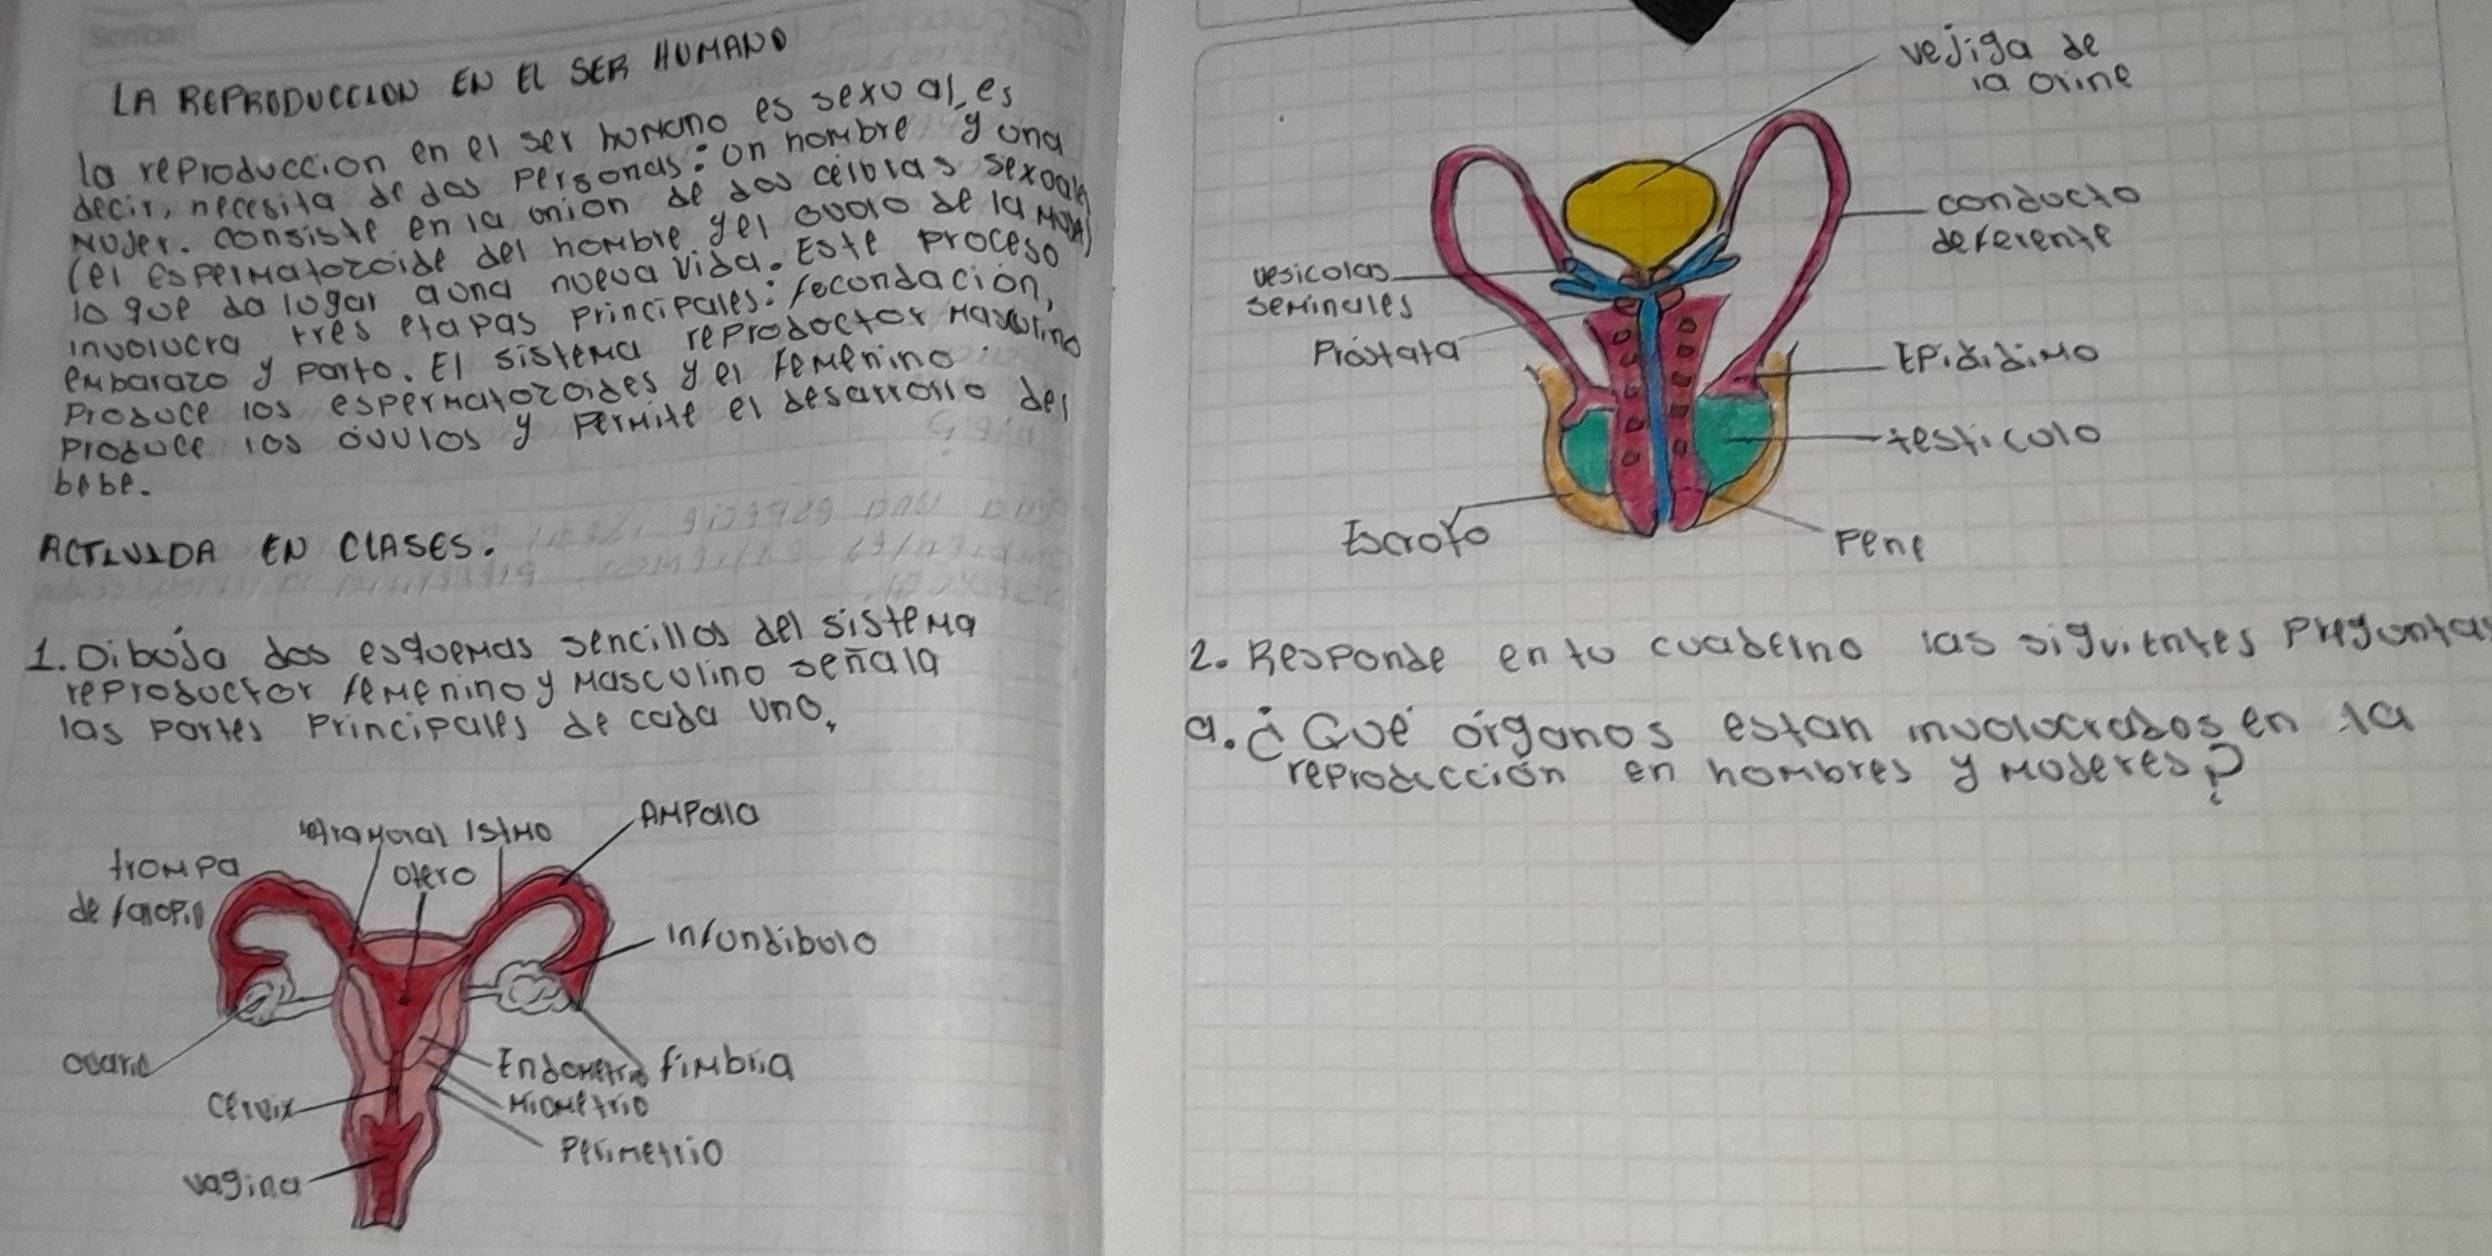 LA REPRODUCCION EN EL SER HUMANO
la reproduccion en el ser humano es sexual, es
decir, necesita de dos personas: un hombre y una
mujer. consiste en la union de dos celulas sexuales
(el espermatozoide del hombre y el ovulo de la mujer)
lo que da lugar a una nueva vida. Este proceso
involucra tres etapas principales: fecundación,
embarazo y parto. El sistema reproductor masculino
produce los espermatozoides y el femenino
produce los óvulos y permite el desarrollo del
bebe.
ACTIVIDA EN CLASES.
1. Dibuja dos esquemas sencillos del sistema
reproductor femenino y masculino señala
las partes principales de cada uno.
intramural istmo
AMPolla
trompa
de falopio
Utero
infundibulo
ovario
Endometrio
fimbria
cervix
Miometrio
perimetrio
vagina
vejiga de
la orine
conducto
deferente
vesiculas
seminales
Próstata
Epididimo
testiculo
Escroto
Pene
2. Responde en tu cuaderno las siguientes preguntas
a. ¿Qué órganos estan involucrados en la
reproducción en hombres y mujeres?